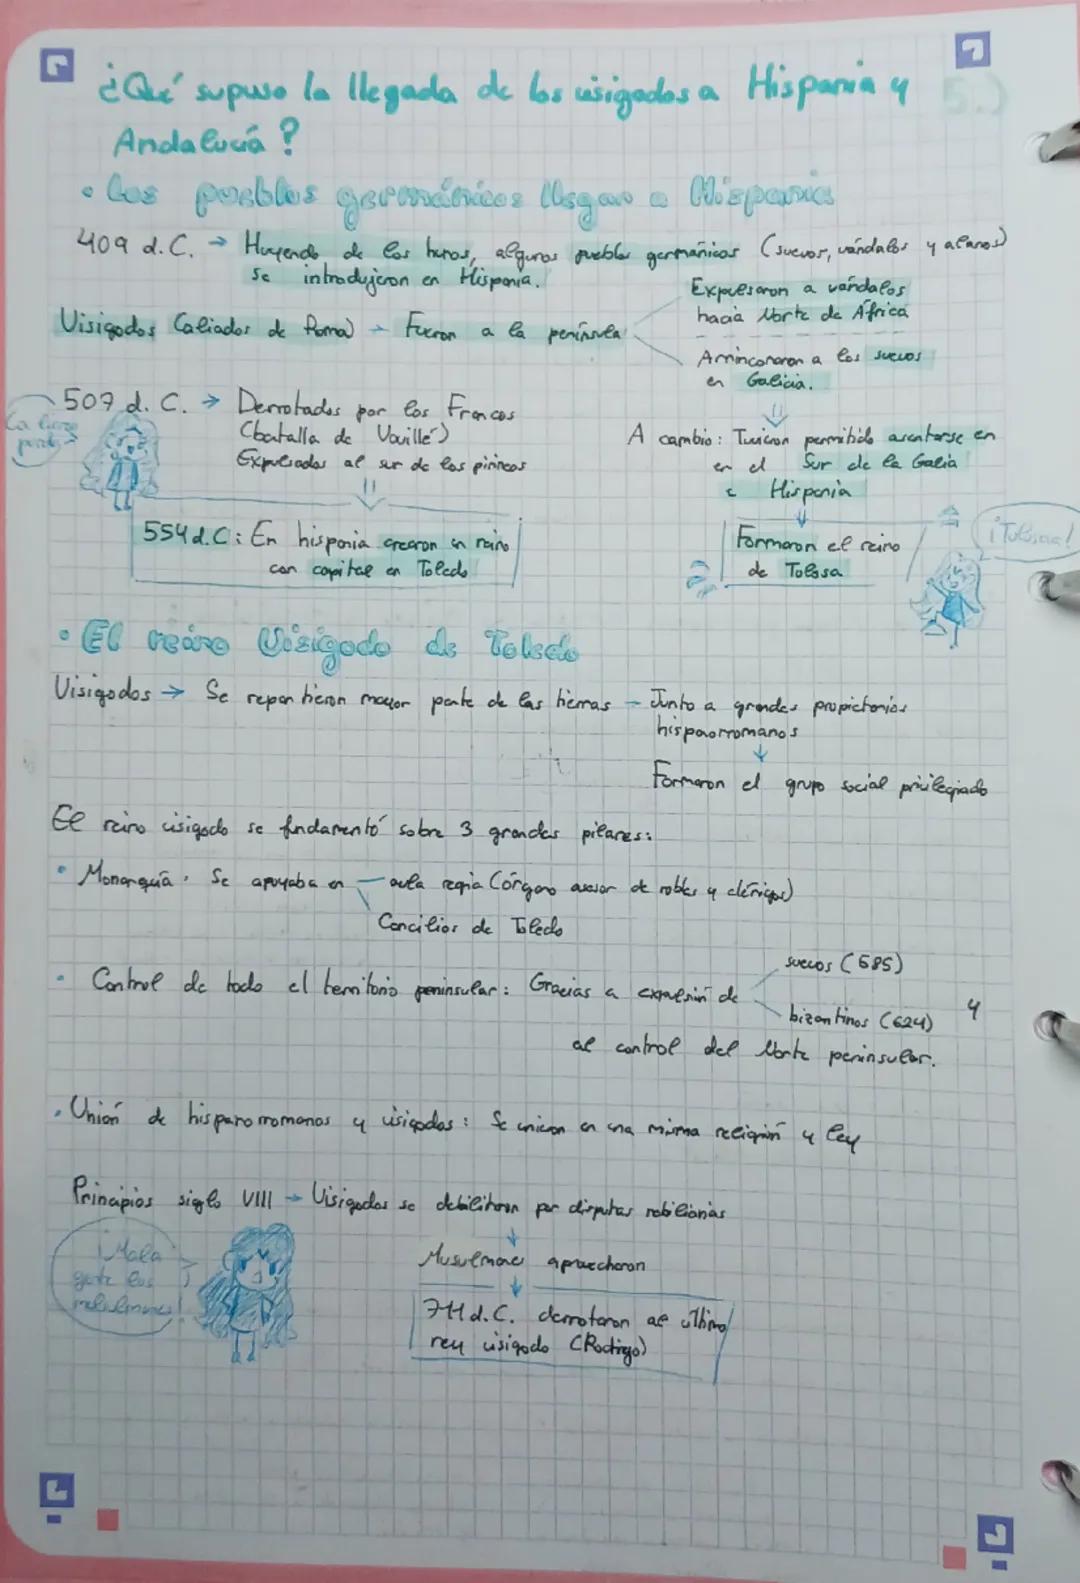 ¿Qué supuso la llegada de los visigodos a Hispania y
Andalucía?
5.)
• Los pueblos germánicos llegan a Hispania
409 d.C. → Huyendo de los hunos, algunos pueblos germánicos (suevos, vándalos y alanos)
se introdujeron en Hispania.
Visigodos (aliados de Roma) → Fueron a la península
Expulsaron a vándalos
hacia Norte de África
Arrinconaron a los suevos
en Galicia.
507 d. C. → Derrotados por los Francos
(batalla de Vouillé)
Expulsados al sur de los pirineos
554 d.C: En hispania crearon un reino
con capital en Toledo
A cambio: Tuvieron permitido asentarse en
en el Sur de la Galia
e Hispania
Formaron el reino
de Tolosa
¡Tolosaa!
• El reino Visigodo de Toledo
Visigodos → Se repartieron mayor parte de las tierras → Junto a grandes propietarios
hispanorromanos
Formaron el grupo social privilegiado
El reino visigodo se fundamentó sobre 3 grandes pilares:
• Monarquía: Se apoyaba en
aula regia (órgano asesor de nobles y clérigos)
Concilios de Toledo
• Control de todo el territorio peninsular: Gracias a expulsión de
suevos (585)
bizantinos (624)
y
al control del Norte peninsular.
• Unión de hispanorromanos y visigodos: Se unieron en una misma religión y ley
Principios siglo VIII → Visigodos se debilitaron por disputas nobiliarias
¡Mala
gente los
musulmanes!
Musulmanes aprovecharon
711 d.C. derrotaron al último
rey visigodo (Rodrigo)